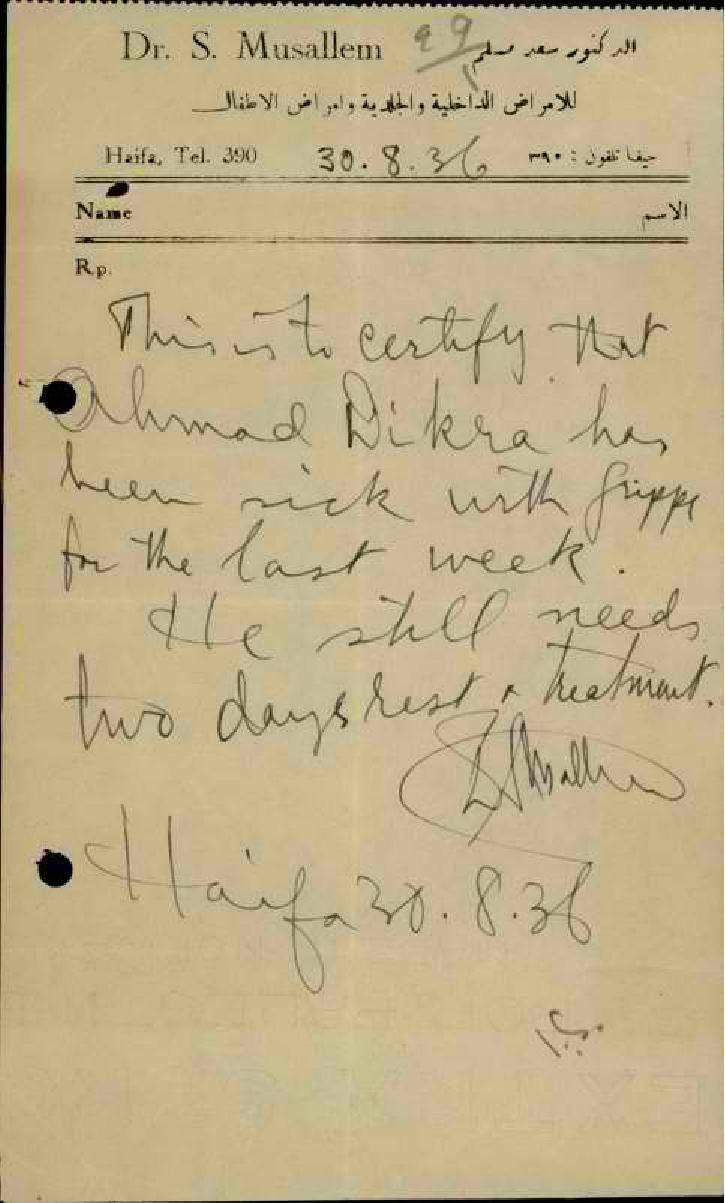 Dr. S. Musallem
99
الدكتور سعد مسلم
للامراض الداخلية والجلدية وامراض الاطفال
Haifa, Tel. 390
30.8.36
حيفا تلفون : ٣٩٠
Name
الاسم
Rp.
This is to certify that
Ahmad Dikra has
been sick with grippe
for the last week.
He still needs
two days rest & treatment.
Dr SMusallem
Haifa 30.8.36